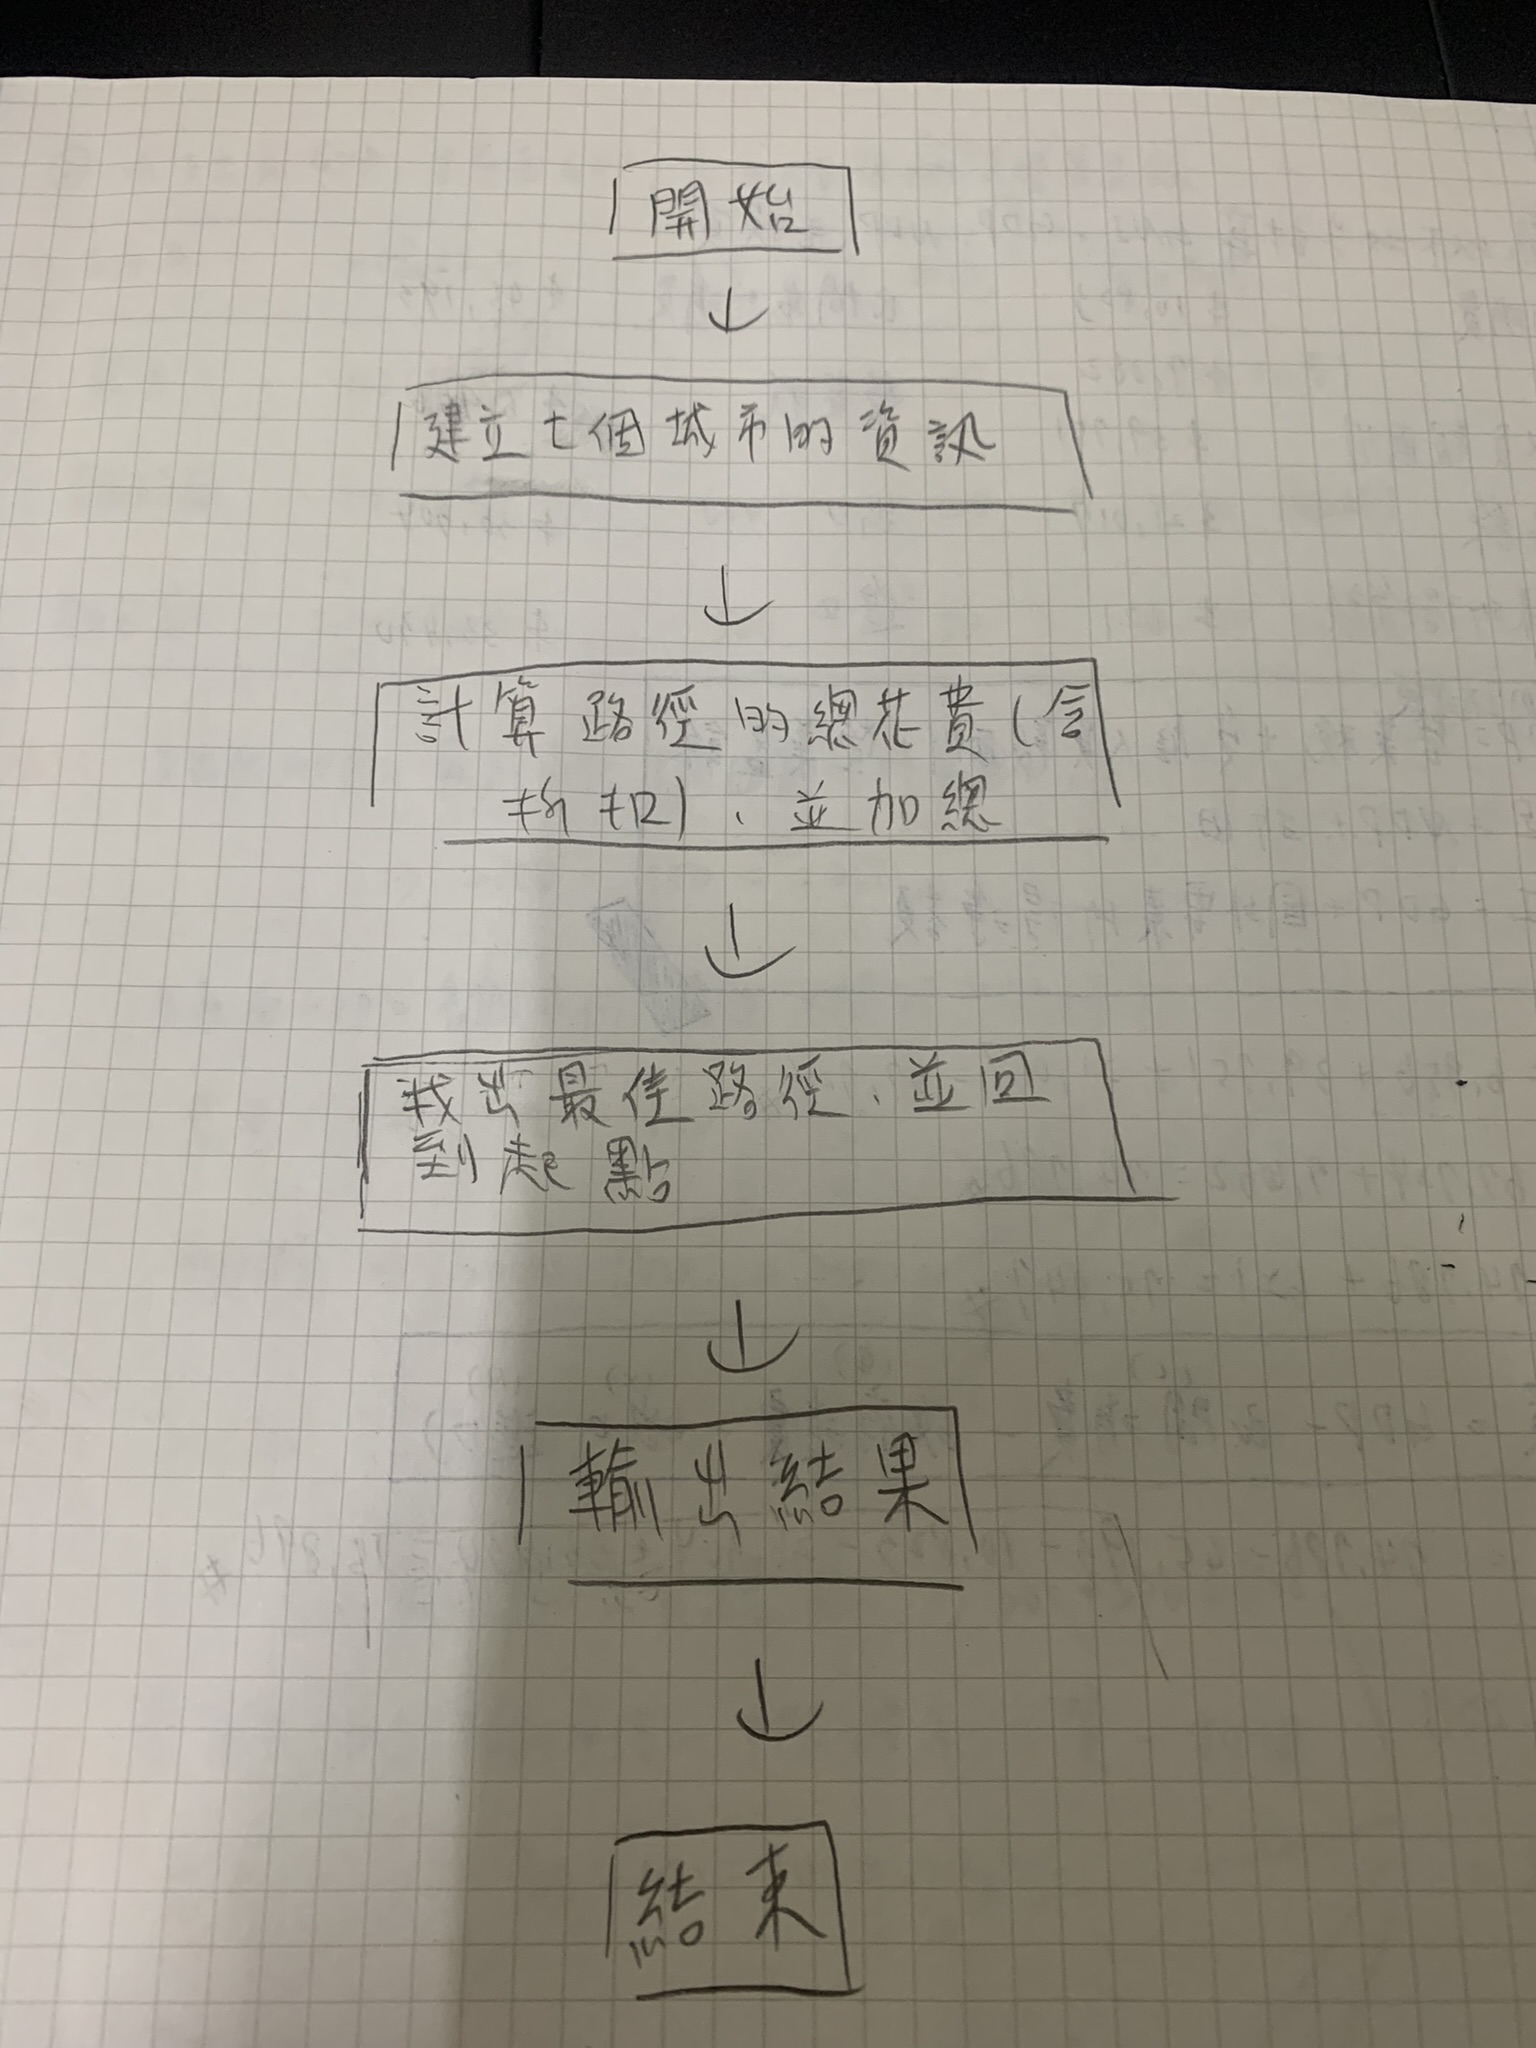 開始
↓
建立七個城市的資訊
↓
計算路徑的總花費(含
折扣)、並加總
↓
找出最佳路徑、並回
到起點
↓
輸出結果
↓
結束